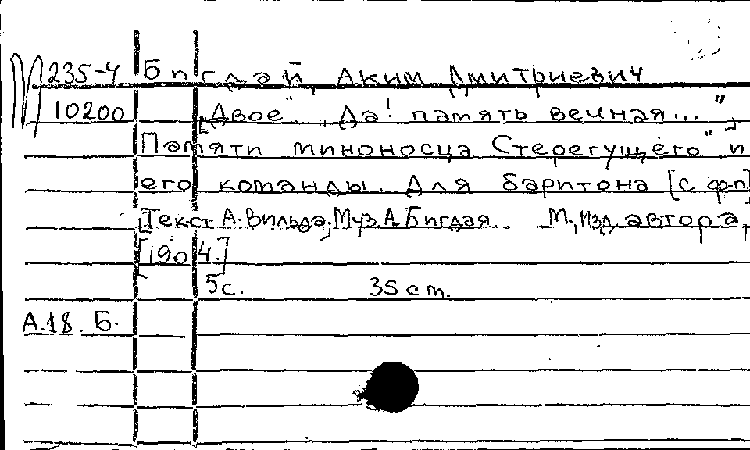 М 235-4 Бигдай, Аким Дмитриевич
10200 „Двое". „Да! память вечная..."
Памяти миноносца Стерегущего" и
его команды. Для баритона [с ф-п]
[Текст А. Вильда, Муз. А. Бигдая. М., Изд. автора,
[1904.]
5 с. 35 см.
А.18. Б.